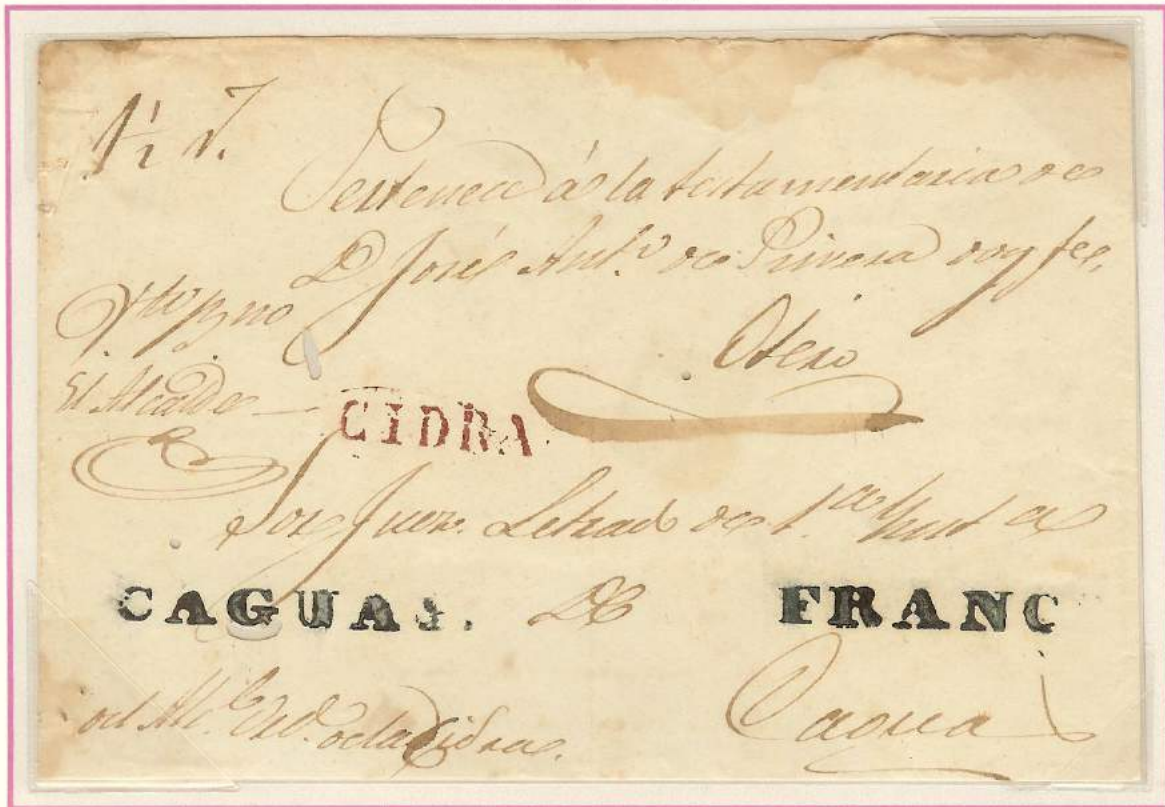 1½ r.
Pertenece á la testamentaria de
D José Ant.º de Rivera
Otero
El Alcalde
CIDRA
Sor Juez Letrado de 1.ra Inst.a
CAGUAS. De FRANC
Caguas
del Alc.e de la Cidra.